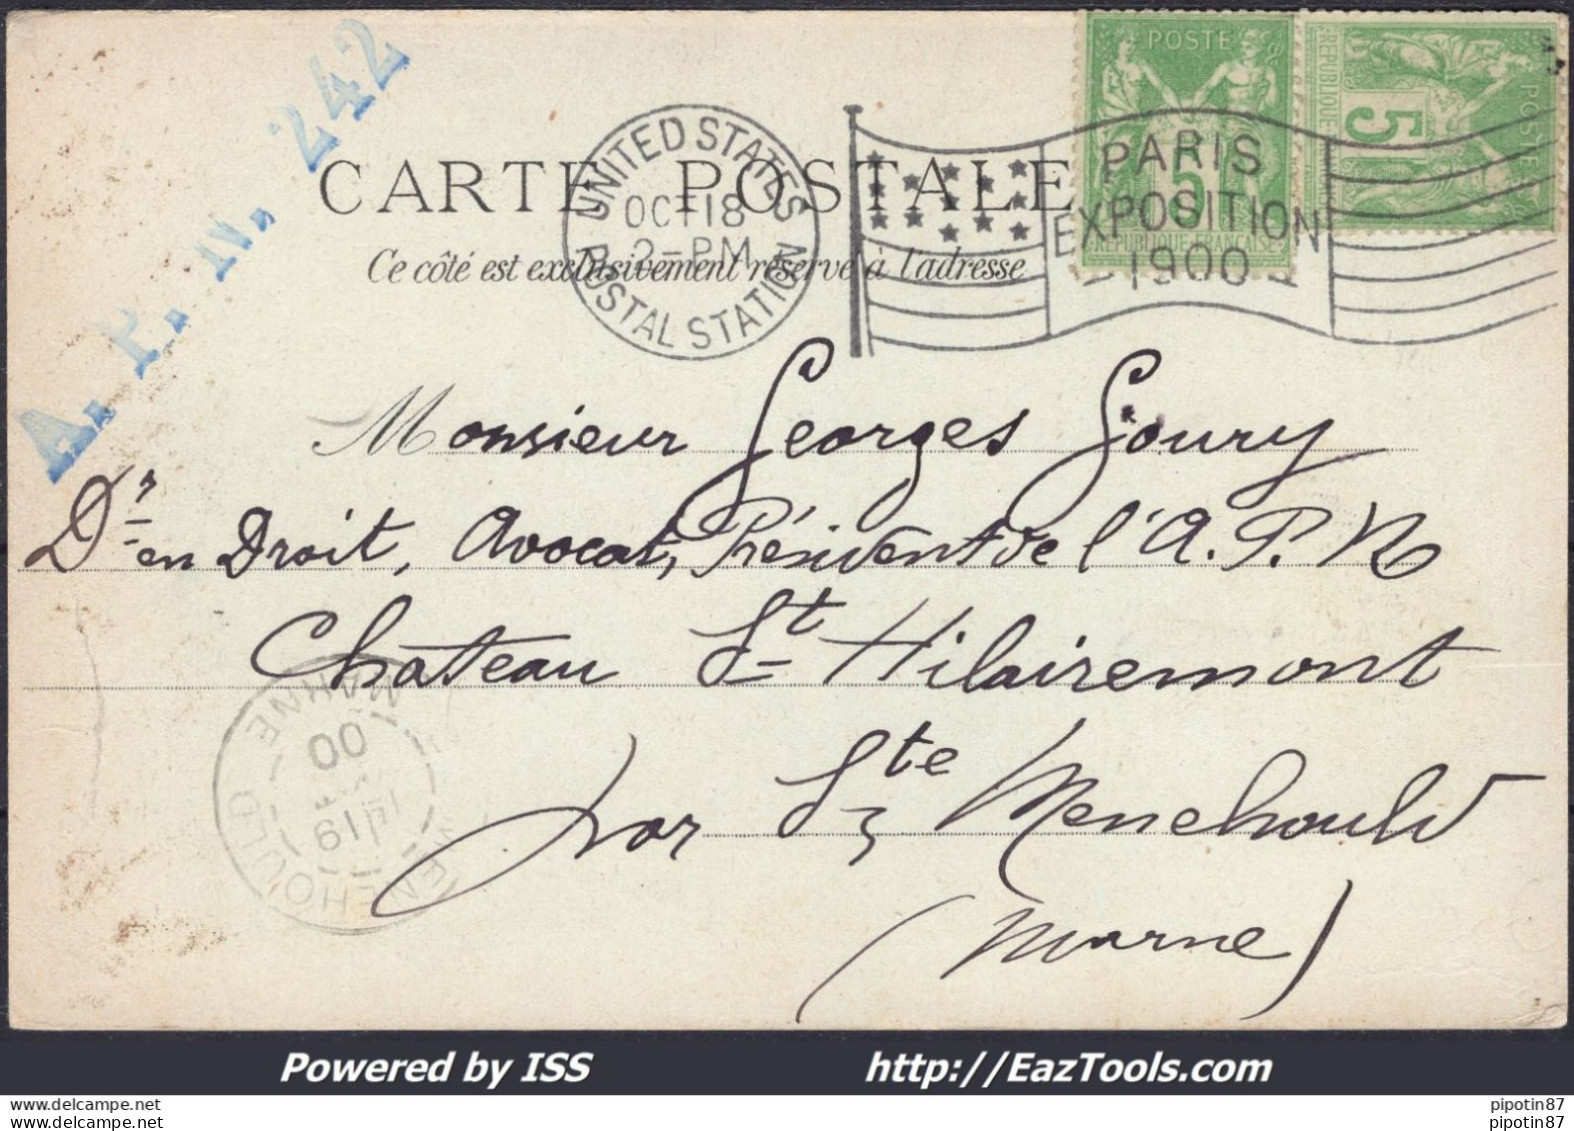 A. P. N. 242
CARTE POSTALE
Ce côté est exclusivement réservé à l'adresse
UNITED STATES
OCT 18
2-PM
POSTAL STATION
PARIS
EXPOSITION
1900
POSTE
5
RÉPUBLIQUE FRANÇAISE
POSTE
5
RÉPUBLIQUE
Monsieur Georges Goury
Dr en Droit, Avocat, Président de l'A. P. N
Chateau St Hilairemont
par Ste Menehould
(Marne)
MENEHOULD
MARNE
19
00
Powered by ISS http://EazTools.com
pipotin87 pipotin87
pipotin87 pipotin87